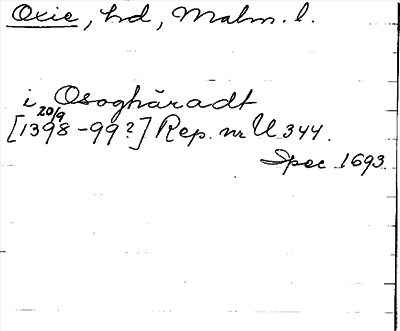 Oxie, hd, Malm. l.
i Osoghäradt
20/9
[1398-99?] Rep. nr U 344.
Spec 1693